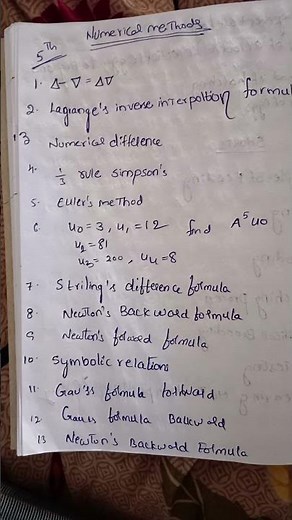 Numerical methods
5th
1. Δ-∇ = Δ∇
2. Lagrange's inverse interpoltion formul
13 Numerical difference
4. 1/3 rule simpson's
5. Euler's method
6. u0 = 3, u1 = 12 find A^5 u0
u2 = 81
u3 = 200, u4 = 8
7. Striling's difference formula
8. Newton's Backword formula
9 Newton's forword formula
10. Symbolic relations
11. Gau'ss formula forward
12 Gauss formula Backwold
13 Newton's Backwold Formula